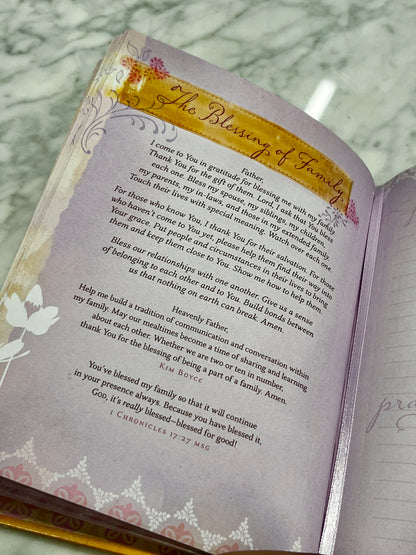 The Blessing of Family
Father,
I come to You in gratitude for blessing me with my family.
Thank You for the gift of them. Lord, I ask that You bless
each one. Bless my spouse, my siblings, my children,
my parents, my in-laws, and those in my extended family.
Touch their lives with special meaning. Watch over each one.
For those who know You, I thank You for their salvation. For those
who haven't come to You yet, please help them find their way into
Your grace. Put people and circumstances in their lives to bring
them and keep them close to You. Show me how to help them.
Bless our relationships with one another. Give us a sense
of belonging to each other and to You. Build bonds between
us that nothing on earth can break. Amen.
Heavenly Father,
Help me build a tradition of communication and conversation within
my family. May our mealtimes become a time of sharing and learning
about each other. Whether we are two or ten in number,
thank You for the blessing of being a part of a family. Amen.
Kim Boyce
You've blessed my family so that it will continue
in your presence always. Because you have blessed it,
God, it's really blessed—blessed for good!
1 Chronicles 17:27 msg